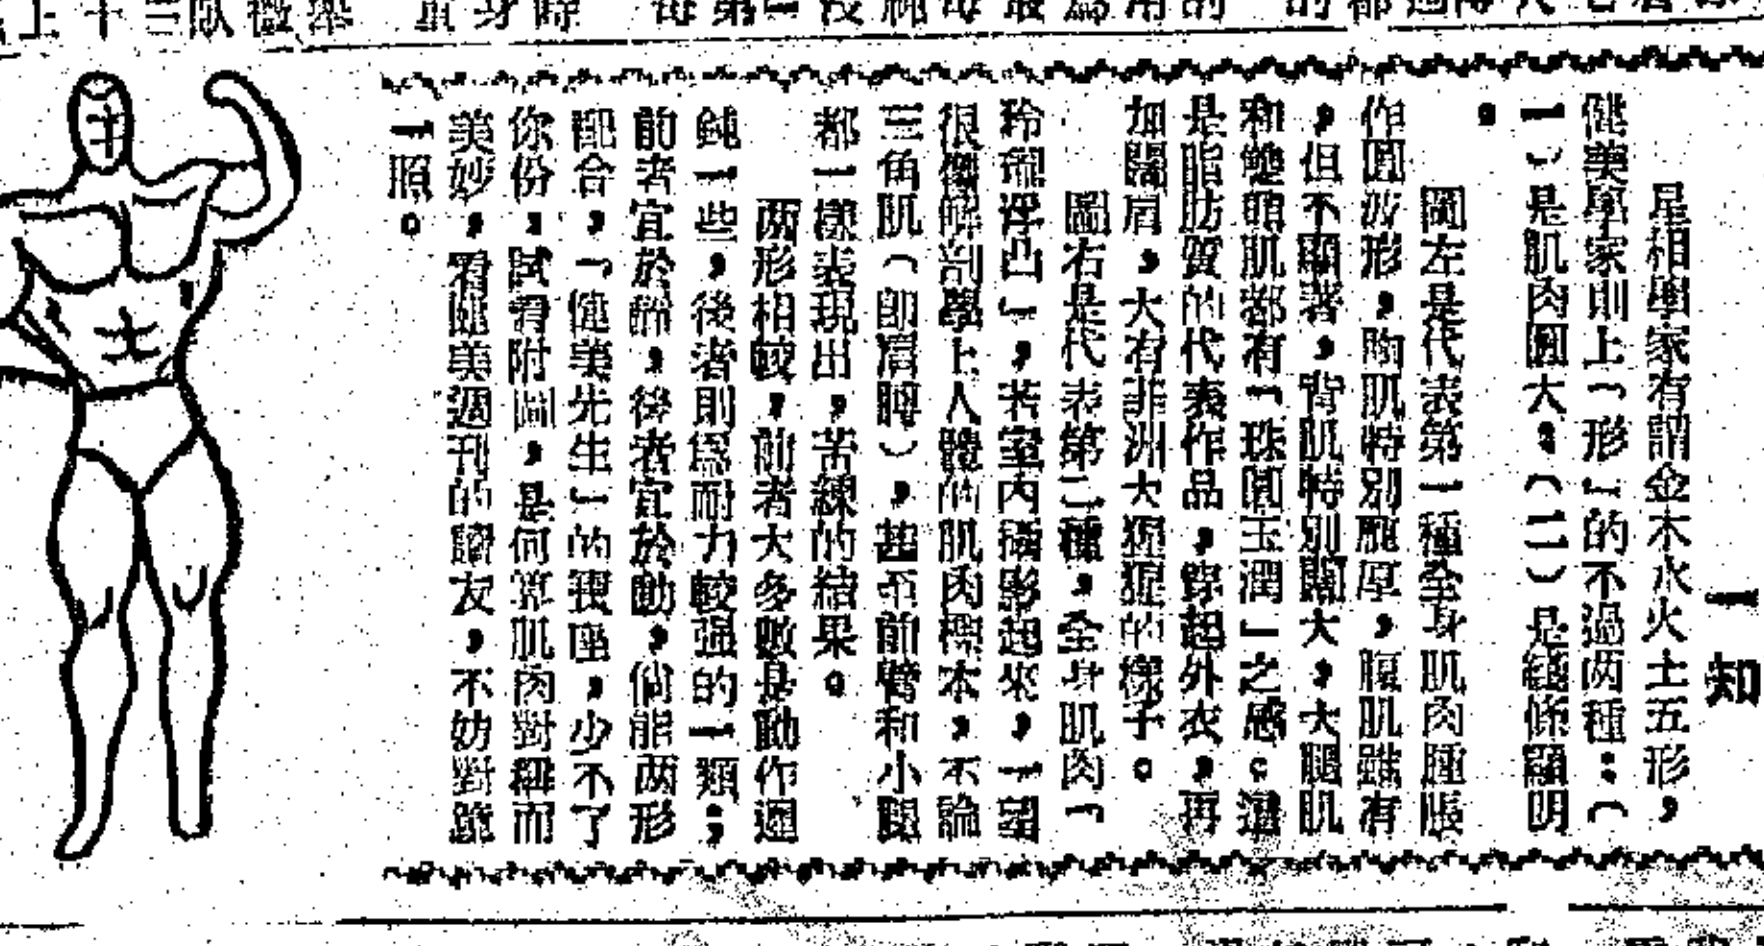 一知
星相學家有謂金木水火土五形，
健美學家則上「形」的不過两種：（
一）是肌肉圓大。（二）是綫條顯明
。
圖左是代表第一種全身肌肉腫脹
作圓形，胸肌特別厚，腹肌雖有
，但不顯著，背肌特別闊大，大腿肌
和雙頭肌都有「珠圓玉潤」之感。這
是脂肪質的代表作品，穿起外衣，再
加闊肩，大有非洲大猩猩的樣子。
圖右是代表第二種，全身肌肉「
玲瓏浮凸」，若室內攝影起來，一望
很像解剖學上人體的肌肉標本，不論
三角肌（即肩膊），甚至前臂和小腿
都一樣表現出，苦練的結果。
两形相較，前者大多數是動作遲
鈍一些，後者則爲耐力較强的一類；
前者宜於靜，後者宜於動，倘能两形
配合，「健美先生」的寶座，少不了
你份，試看附圖，是何等肌肉對稱而
美妙，看健美週刊的讀友，不妨對鏡
一照。